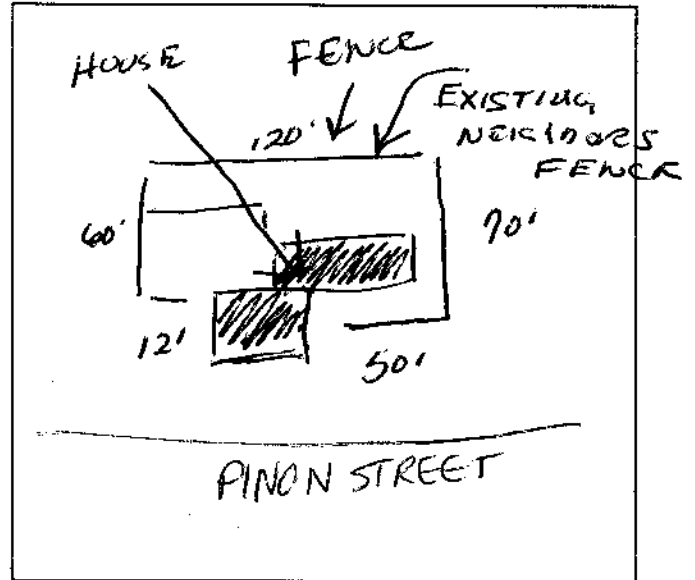 HOUSE
FENCE
EXISTING
NEIGHBORS
FENCE
120'
60'
70'
12'
50'
PINON STREET